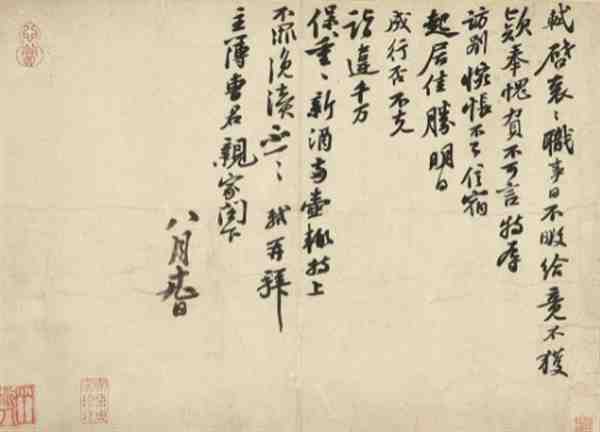 軾啓袞〻職事日不暇給竟不獲
款奉愧負不可言特辱
訪別惋悵不已信宿
起居佳勝明日
成行否不克
詣違千万
保重〻新酒兩壺輒持上
不罪浼瀆不一〻軾再拜
主簿曹君親家閤下
八月日